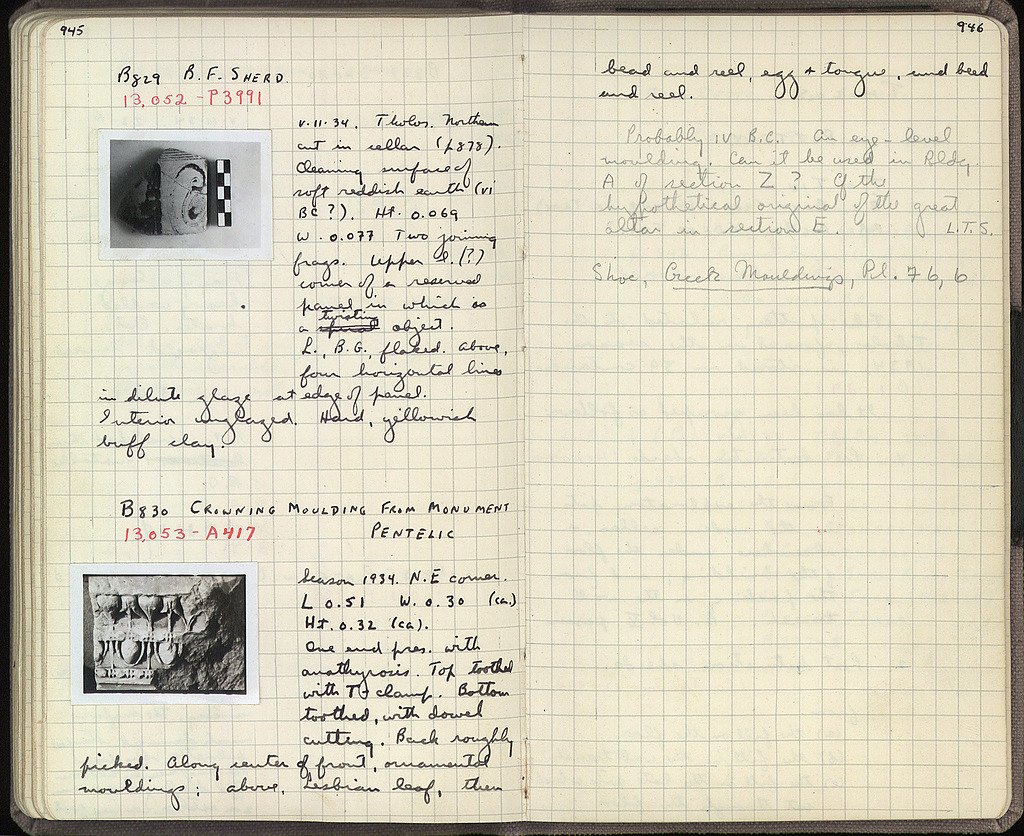 945
B829 B.F. SHERD.
13,052 - P3991
V.11.34. Tholos. Northern
cut in cellar (p878).
Cleaning surface of
soft reddish earth (VI
BC?). Ht. 0.069
W. 0.077 Two joining
frags. Upper l.(?)
corner of a reserved
panel in which is
twisting
a spiral object.
L., B.G., flaked. Above,
four horizontal lines
in dilute glaze at edge of panel.
Interior unglazed. Hard, yellowish
buff clay.
B830 CROWNING MOULDING FROM MONUMENT
13,053 - A417 PENTELIC
Season 1934. N.E corner.
L 0.51 W. 0.30 (ca.)
Ht. 0.32 (ca).
One end pres. with
anathyrosis. Top toothed
with T-clamp. Bottom
toothed, with dowel
cutting. Back roughly
picked. Along center of front, ornamental
mouldings; above, Lesbian leaf, then
946
bead and reel, egg & tongue, and bead
and reel.
Probably IV B.C. An eye-level
moulding. Can it be used in Bldg.
A of section Z? Cf the
hypothetical original of the great
altar in section E. L.T.S.
Shoe, Greek Mouldings, Pl. 76, 6